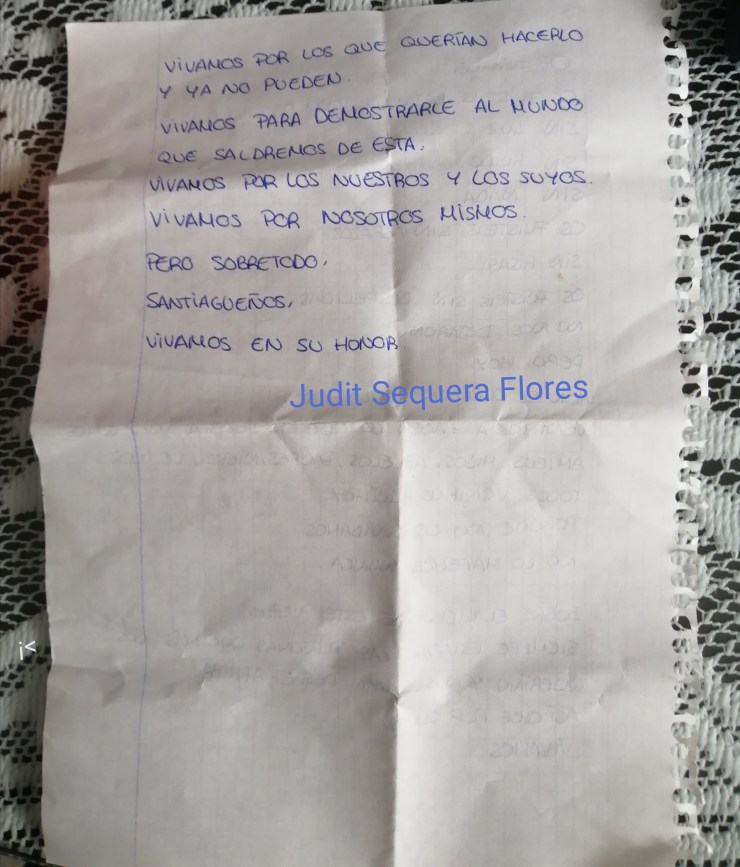 VIVAMOS POR LOS QUE QUERÍAN HACERLO
Y YA NO PUEDEN.
VIVAMOS PARA DEMOSTRARLE AL MUNDO
QUE SALDREMOS DE ESTA.
VIVAMOS POR LOS NUESTROS Y LOS SUYOS.
VIVAMOS POR NOSOTROS MISMOS.
PERO SOBRETODO,
SANTIAGUEÑOS,
VIVAMOS EN SU HONOR
Judit Sequera Flores
i<